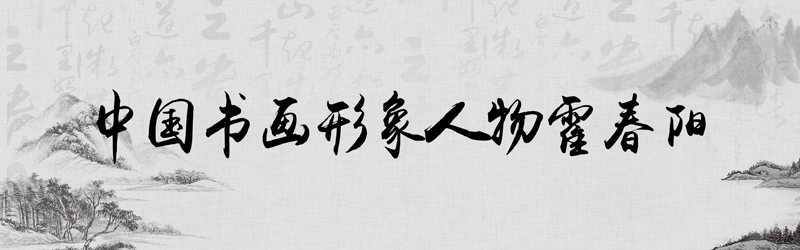 中国书画形象人物霍春阳